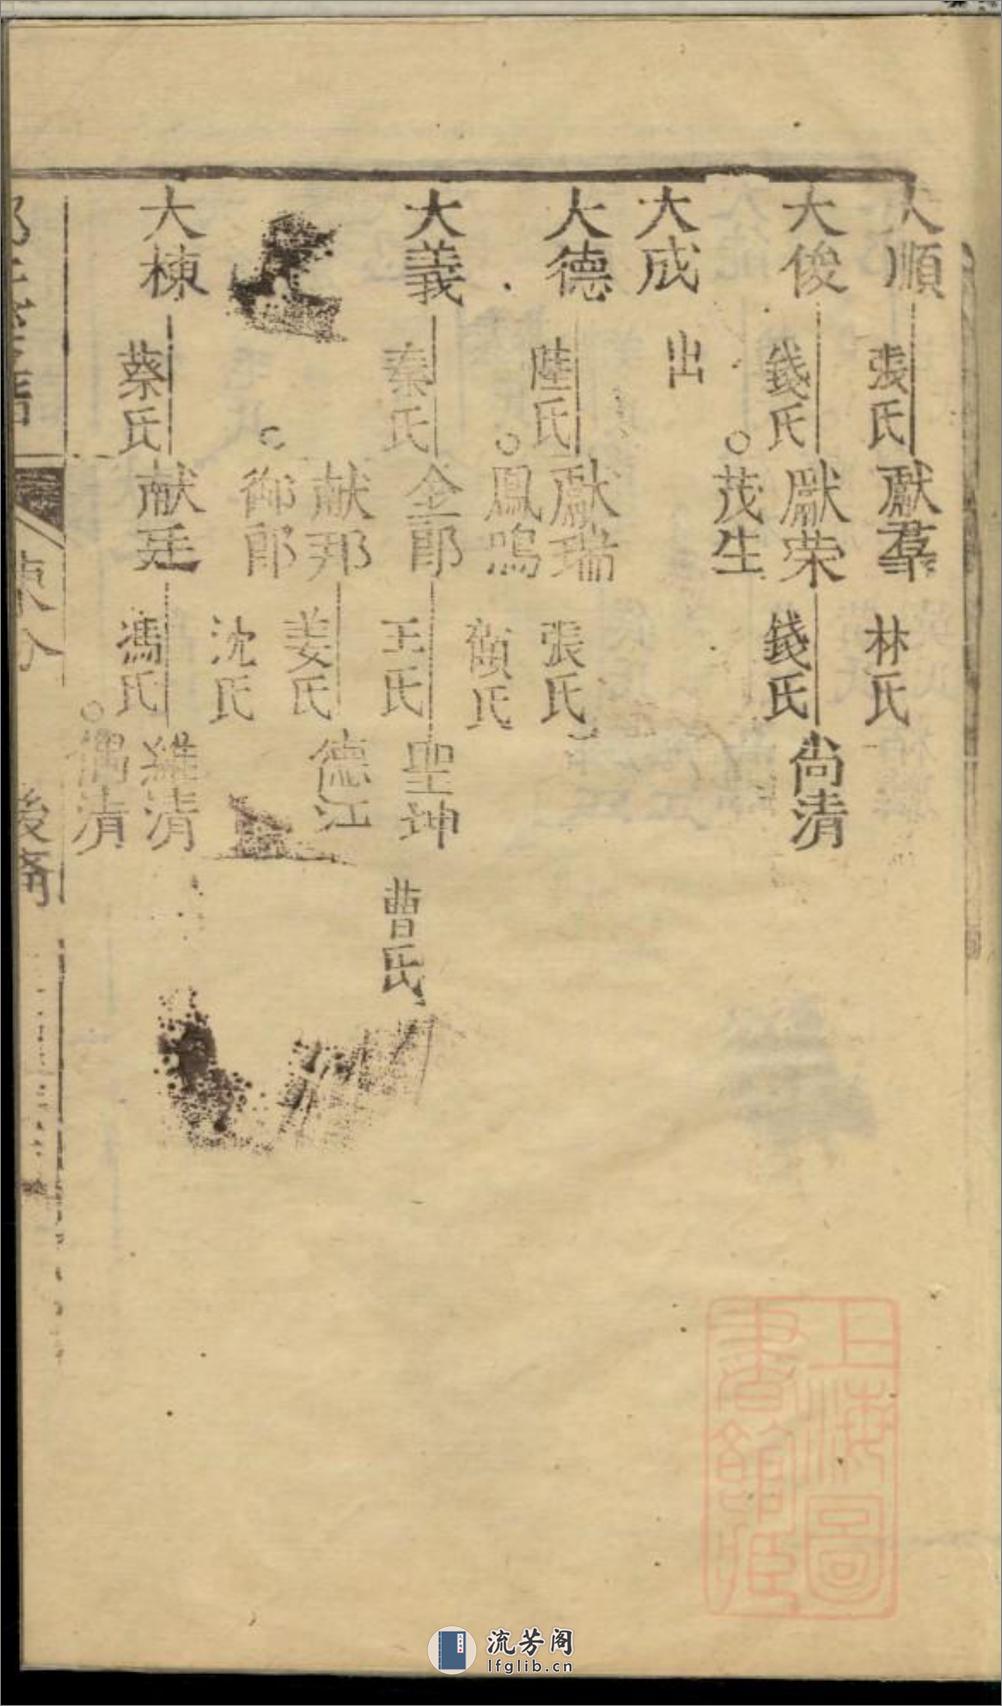 大順
張氏
獻羣
林氏
大俊
錢氏
獻荣
錢氏
尚清
茂生
大成
出
大德
陸氏
獻瑞
張氏
鳳鳴
顧氏
大義
秦氏
全郎
王氏
聖坤
曹氏
献邦
姜氏
德江
御郎
沈氏
大棟
蔡氏
献廷
馮氏
維清
清
東分
後
上海圖
書館藏
流芳阁
lfglib.cn